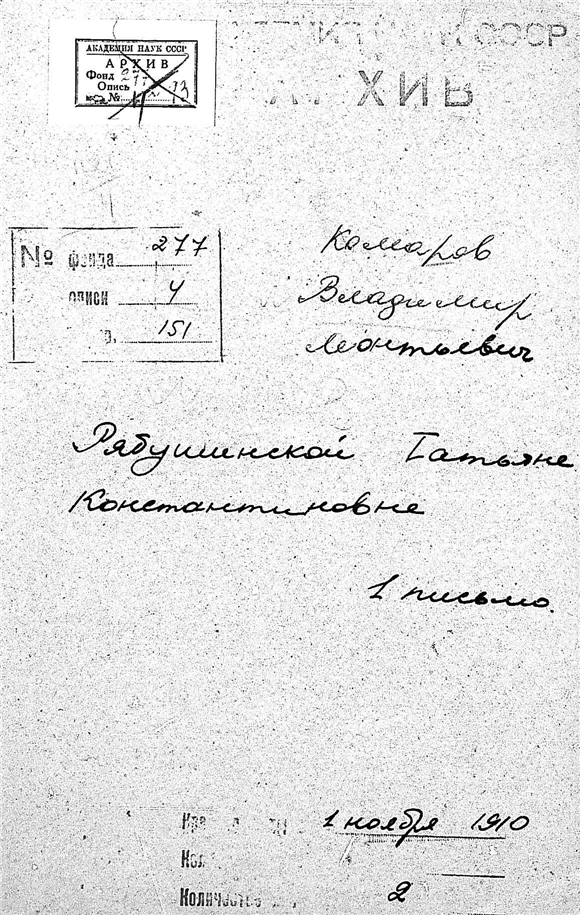 АКАДЕМИЯ НАУК СССР
АРХИВ
Фонд 277
Опись
№ 13
СССР
ХИВ
№ фонда 277
описи 4
151
Комаров
Владимир
Леонтьевич
Рябушинской Татьяне
Константиновне
1 письмо.
1 ноября 1910
Количество 2